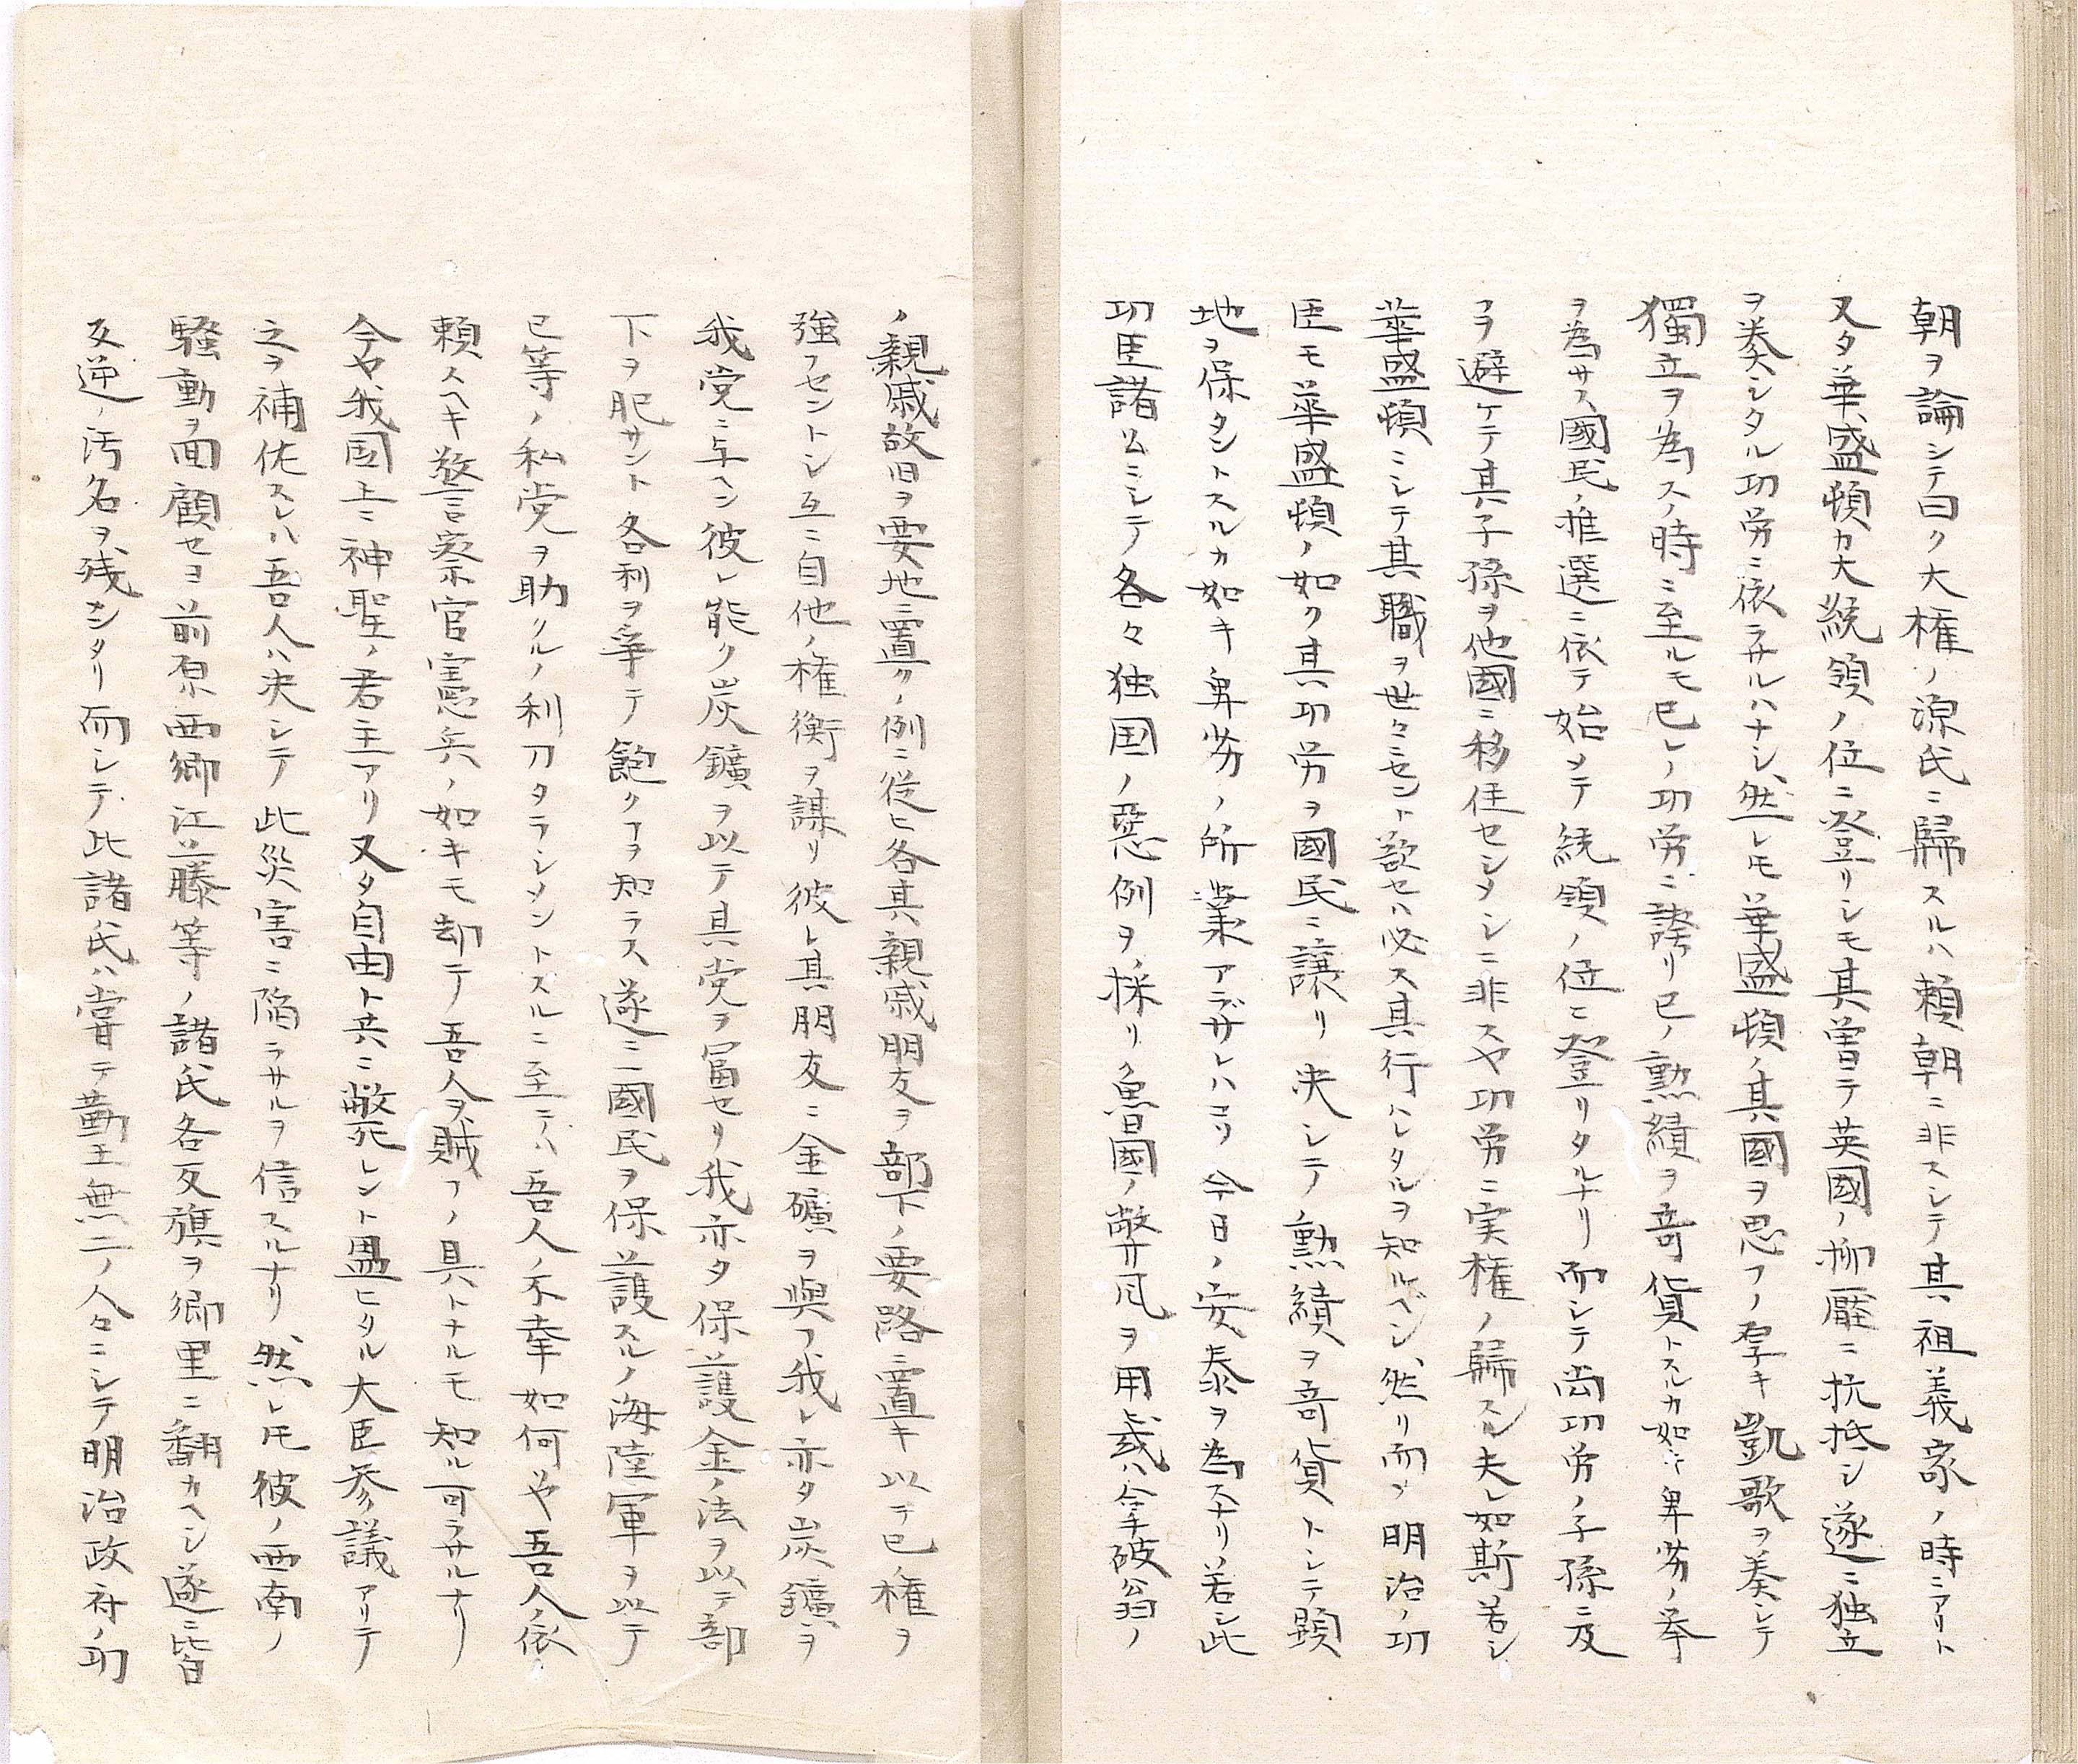 朝ヲ論シテ曰ク大権ノ源氏ニ歸スルハ頼朝ニ非スシテ其祖義家ノ時ニアリト
又タ華盛頓カ大統領ノ位ニ登リシモ其曽テ英國ノ抑壓ニ抗抵シ遂ニ独立
ヲ奏シタル功労ニ依ラサルハナシ、然レ𪜈華盛頓ノ其國ヲ思フノ厚キ凱歌ヲ奏シテ
獨立ヲ為スノ時ニ至ルモ已レノ功労ニ誇リ已ノ勲績ヲ竒貨トスルカ如キ卑劣ノ挙
ヲ為サス國民ノ推選ニ依テ始メテ統領ノ位ニ登リタルナリ而シテ尚功労ノ子孫ニ及
フヲ避ケテ其子孫ヲ他國ニ移住セシメシニ非スヤ功労ニ実権ノ歸スル夫レ如斯若シ
華盛頓ニシテ其職ヲ世々ニセント欲セハ必ス其行ハレタルヲ知ルベシ、然リ而メ明治ノ功
臣モ華盛頓ノ如ク其功労ヲ國民ニ譲リ决シテ勲績ヲ竒貨トシテ顕
地ヲ保タントスルカ如キ卑劣ノ所業アラザレハコソ今日ノ安泰ヲ為スナリ若シ此
功臣諸公ニシテ各々独国ノ惡例ヲ採リ魯國ノ弊風ヲ用或ハ拿破翁ノ
ノ親戚故旧ヲ要地ニ置クノ例ニ従ヒ各其親戚朋友ヲ部下ノ要路ニ置キ以テ已権ヲ
強フセントシ互ニ自他ノ権衡ヲ謀リ彼レ其朋友ニ金礦ヲ與フ我レ亦タ炭鑛ヲ
我党ニ与ヘン彼レ能ク炭鑛ヲ以テ其党ヲ冨セリ我亦タ保護金ノ法ヲ以テ部
下ヲ肥サント各利ヲ争テ飽クヿヲ知ラス遂ニ國民ヲ保護スルノ海陸軍ヲ以テ
已等ノ私党ヲ助クルノ利刀タラシメントスルニ至テハ吾人ノ不幸如何ヤ吾人ノ依
頼スヘキ警察官憲兵ノ如キモ却テ吾人ヲ賊フノ具トナルモ知ル可ラサルナリ
今ヤ我国上ニ神聖ノ君主アリ又タ自由ト共ニ斃レント盟ヒタル大臣参議アリテ
之ヲ補佐スレハ吾人ハ决シテ此災害ニ陥ラサルヲ信スルナリ、然レ𪜈彼ノ西南ノ
騒動ヲ面顧セヨ前原西郷江藤等ノ諸氏各反旗ヲ郷里ニ翻カヘシ遂ニ皆
反逆ノ汚名ヲ残シタリ而シテ此諸氏ハ嘗テ勤王無二ノ人々ニシテ明治政府ノ功